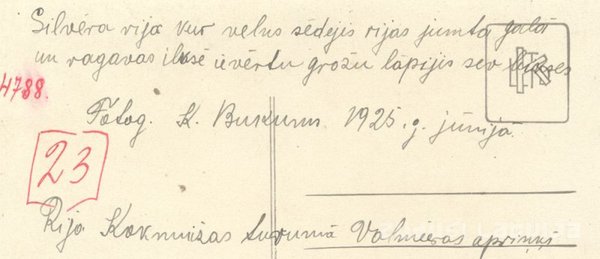 Silvēra rija kur velns sēdejis rijas jumta galā
un ragavas ilksē ievērtu grožu lāpijis sev bikses
4788.
Fotog. K. Bukums 1925. g. jūnijā.
23
Rija Kokmuižas tuvumā Valmieras apriņķī